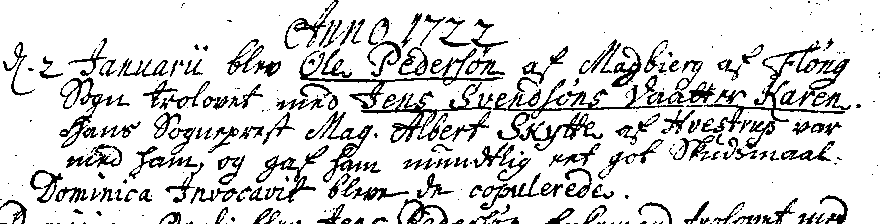 Anno 1722
d. 2 Januarii blev Ole Pedersøn af Madbierg af Fløng
Sogn trolovet med Jens Svendsøns Daatter Karen.
Hans Sogneprest Mag. Albert Skytte af Hvestrup var
med ham, og gaf ham mundtlig eet got Skudsmaal.
Dominica Invocavit bleve de copulerede.
blev Jens Pedersøn trolovet med